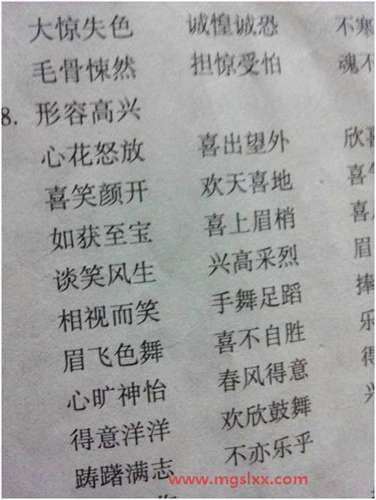 大惊失色 诚惶诚恐 不寒
毛骨悚然 担惊受怕 魂不
8. 形容高兴
心花怒放 喜出望外 欣喜
喜笑颜开 欢天喜地 喜气
如获至宝 喜上眉梢 喜
谈笑风生 兴高采烈 眉
相视而笑 手舞足蹈 捧
眉飞色舞 喜不自胜 乐
心旷神怡 春风得意
得意洋洋 欢欣鼓舞
踌躇满志 不亦乐乎
www.mgslxx.com